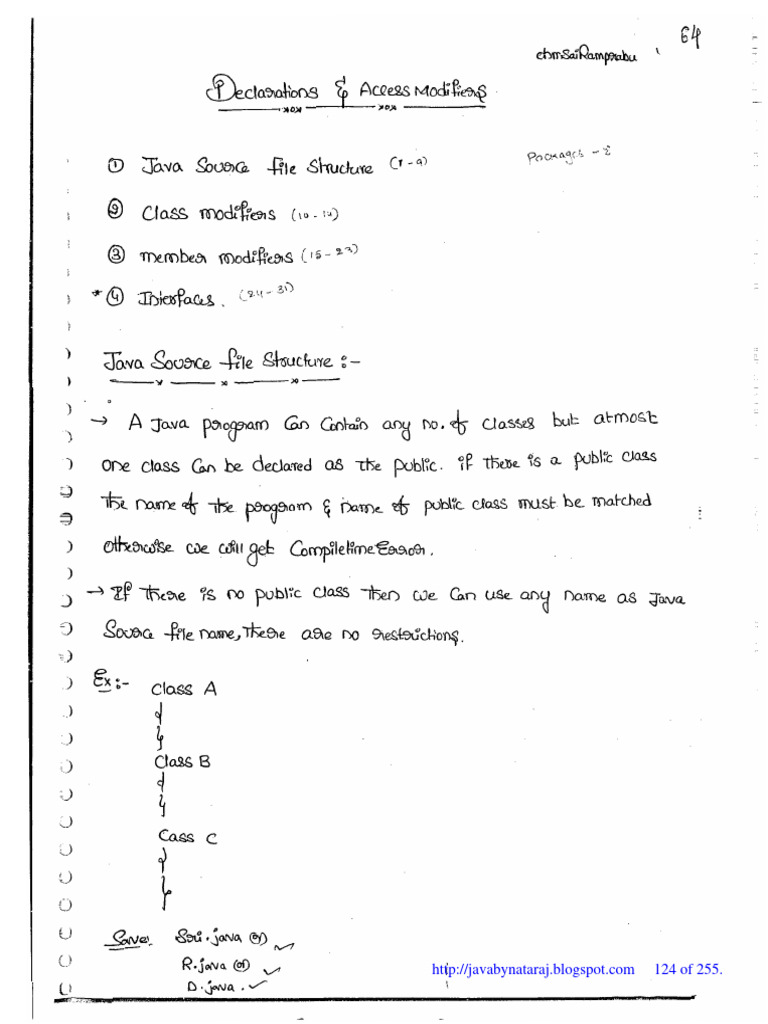 64
chmSaiRamprabu
Declarations & Access Modifiers
① Java Source file Structure (1-9)
Packages - 2
② Class modifiers (10-14)
③ member modifiers (15-23)
* ④ Interfaces. (24-31)
Java Source file Structure :-
→ A Java program Can Contain any no. of classes but atmost
one class Can be declared as the public. if there is a public class
the name of the program & name of public class must be matched
otherwise we will get CompiletimeError.
→ If there is no public class then we can use any name as Java
Source file name, there are no restrictions.
Ex:-
class A
{
}
class B
{
}
Cass C
{
}
Save: Sri.java (or) ✓
R.java (or) ✓
D.java. ✓
http://javabynataraj.blogspot.com 124 of 255.